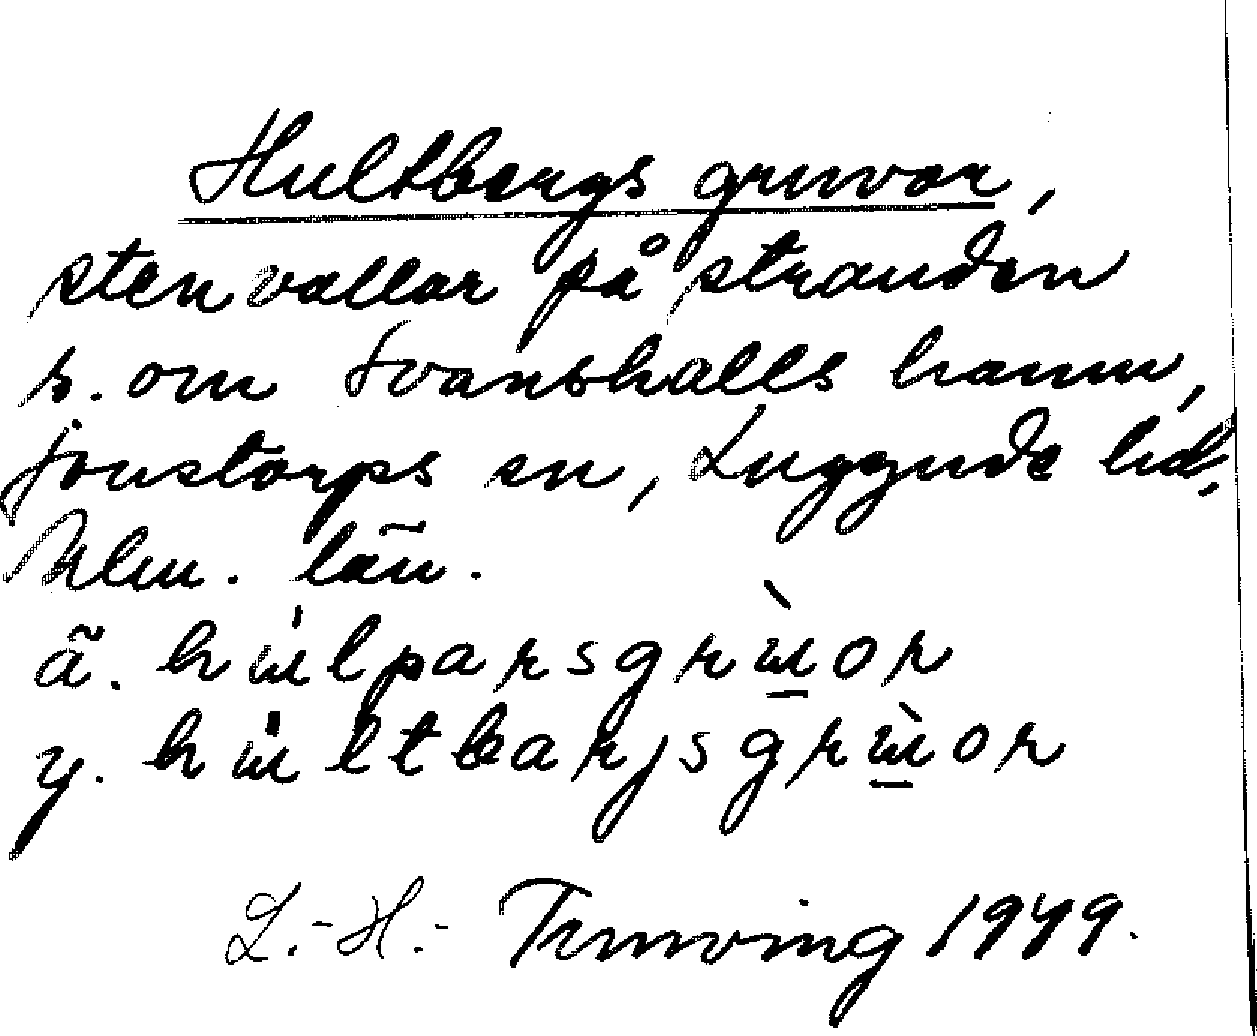 Hultbergs gruvor,
stenvallar på stranden
s. om Svanshalls hamn,
Jonstorps sn, Luggude hd,
Mlm. län.
ä. hɯlparsgrɯ̀or
y. hɯltbarjsgrɯ̀or
L.-H.- Tunving 1949.